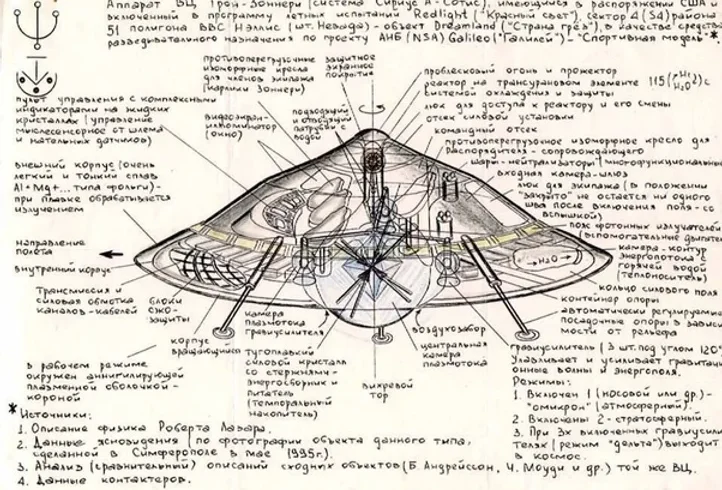 Аппарат ВЦ Трон-Зоннери (система Сириус А-Сотис), имеющийся в распоряжении США и
включенный в программу летных испытаний Redlight ("Красный свет"), сектор 4 (S4) района
51 полигона ВВС Нэллис (шт. Невада) - объект Dreamland ("Страна грез"), в качестве средства
разведывательного назначения по проекту АНБ (NSA) Galileo ("Галилей") - "Спортивная модель" *
противоперегрузочные
изоморфные кресла
для членов экипажа
(карлики Зоннери)
защитное
экранное
покрытие
проблесковый огонь и прожектор
реактор на трансурановом элементе 115 с
системой охлаждения и защиты
люк для доступа к реактору и его смены
отсек силовой установки
командный отсек
противоперегрузочное изоморфное кресло для
распорядителя - сопровождающего
шары-нейтрализаторы (многофункциональны
входная камера-шлюз
люк для экипажа (в положении
"закрыто" не остается ни одного
шва после включения поля - со
вспышкой)
пояс фотонных излучателей
(вспомогательные двигате
камера - контур
энергопотока с
горячей водой
(теплоноситель)
кольцо силового поля
контейнер опоры
автоматически регулируемые
посадочные опоры в зависи
мости от рельефа
пульт управления с комплексными
индикаторами на жидких
кристаллах (управление
мыслесенсорное от шлема
и натальных датчиков)
видеоэкран-
иллюминатор
(окно)
подводящий
и отводящий
патрубки с
водой
внешний корпус (очень
легкий и тонкий сплав
Al+Mg+... типа фольги) -
при плавке обрабатывается
излучением
направление
полета
внутренний корпус
Трансмиссия и
силовая обмотка
каналов-кабелей
блоки
СЖО-
защиты
корпус
вращающийся
камера
плазмотока
гравиусилителя
тугоплавкий
силовой кристалл
со стержнями-
энергосборник и
питатель
(темпоральный
накопитель)
вихревой
тор
воздухозабор
центральная
камера
плазмотока
←H₂O→
гравиусилитель (3 шт. под углом 120°
Улавливает и усиливает гравитаци
онные волны и энергополя.
Режимы:
1. Включен 1 (носовой или др.) -
"омикрон" (атмосферный).
2. Включены 2 - стратосферный.
3. При 3х включенных гравиусили
телях (режим "дельта") выходит
в космос.
в рабочем режиме
окружен аннигилирующей
плазменной оболочкой -
короной
* Источники:
1. Описание физика Роберта Лазара.
2. Данные ясновидения (по фотографии объекта данного типа,
сделанной в Симферополе в мае 1995г.).
3. Анализ (сравнительный) описаний сходных объектов (Б. Андрейссон, Ч. Моуди и др.) той же ВЦ.
4. Данные контактеров.